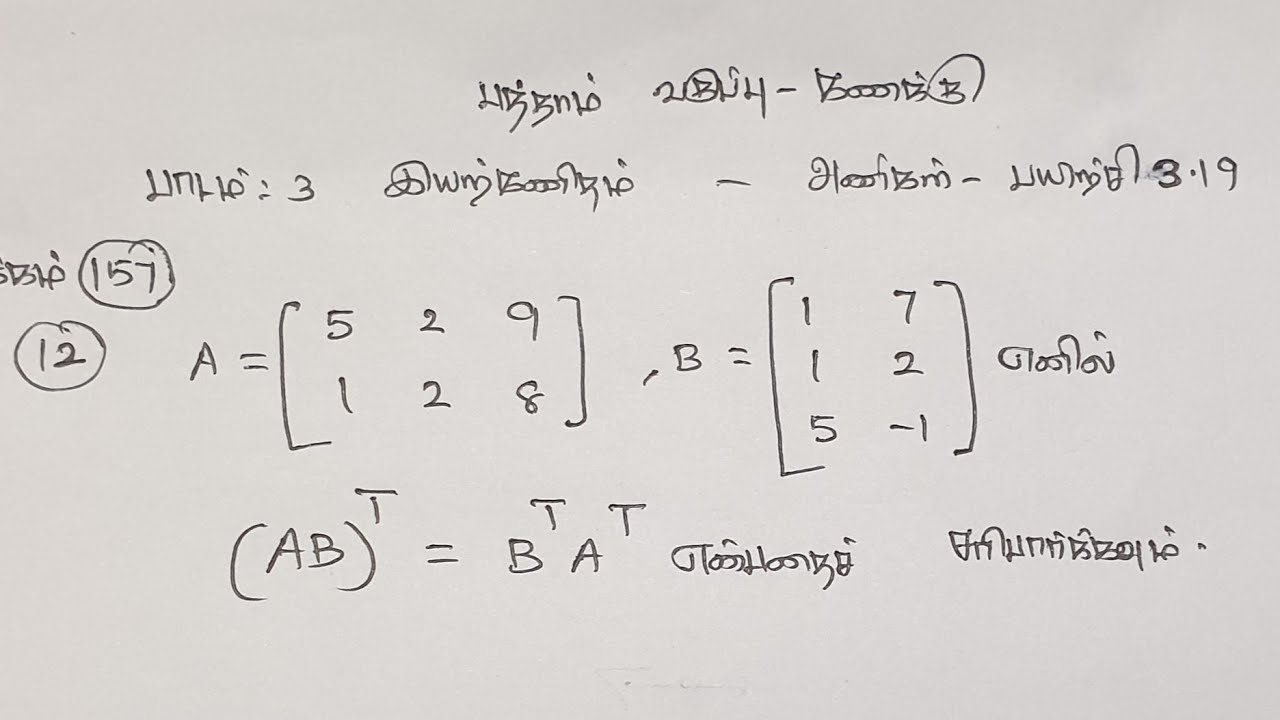 பத்தாம் வகுப்பு - கணக்கு
பாடம்: 3 இயற்கணிதம் - அணிகள் - பயிற்சி 3.19
க்கம் 157
12 A = [ 5 2 9
1 2 8 ] , B = [ 1 7
1 2
5 -1 ] எனில்
(AB)ᵀ = Bᵀ Aᵀ என்பதைச் சரிபார்க்கவும்.